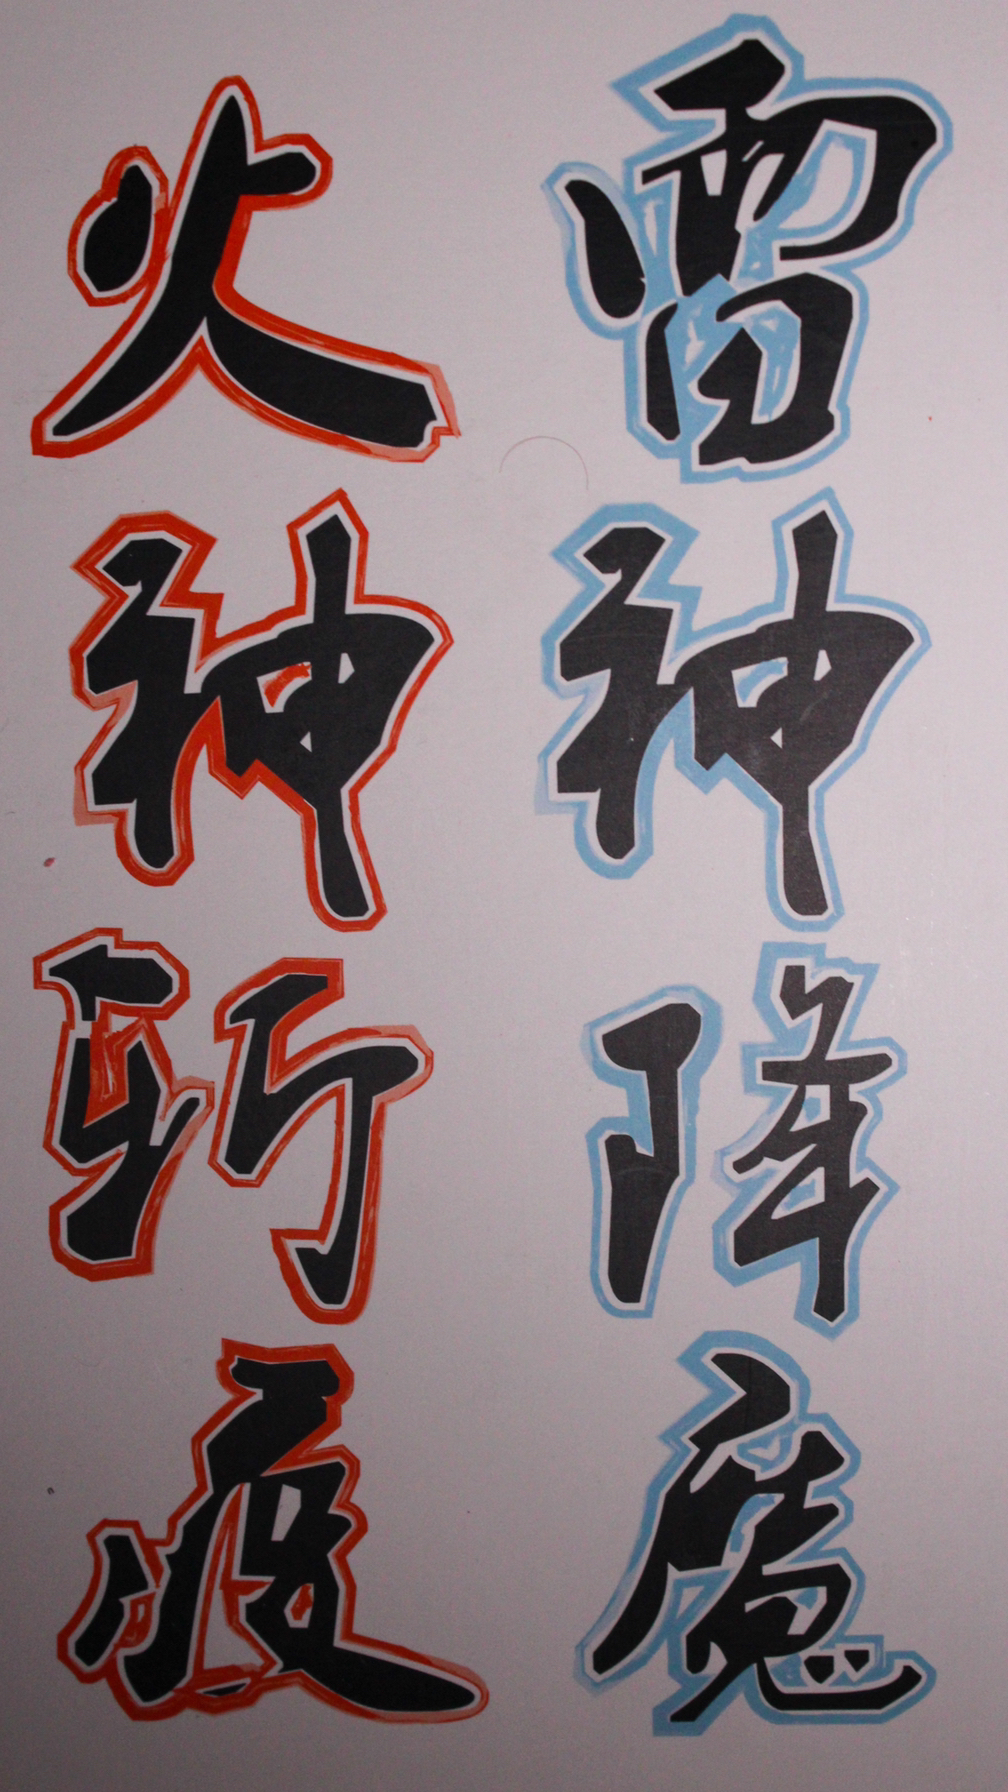 雷神降魔
火神斩疫